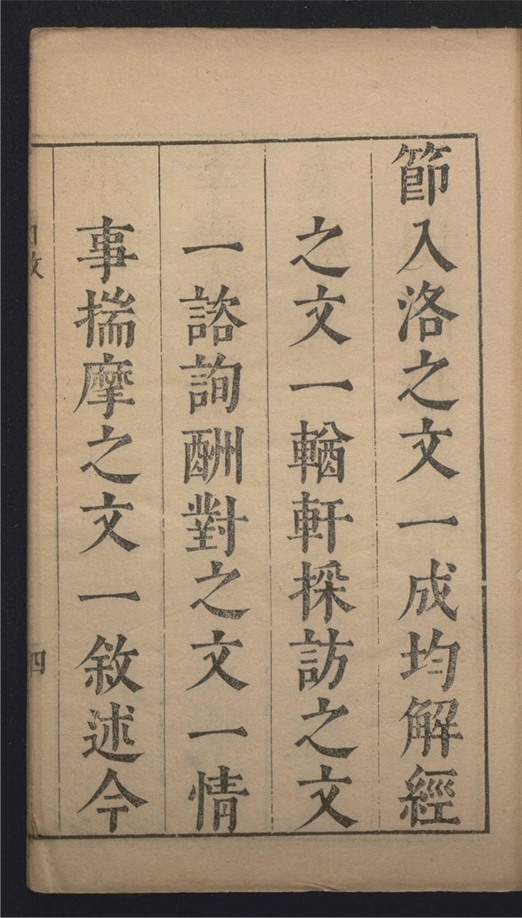 節入洛之文一成均解經
之文一輶軒採訪之文
一諮詢酬對之文一情
事揣摩之文一敘述今
四